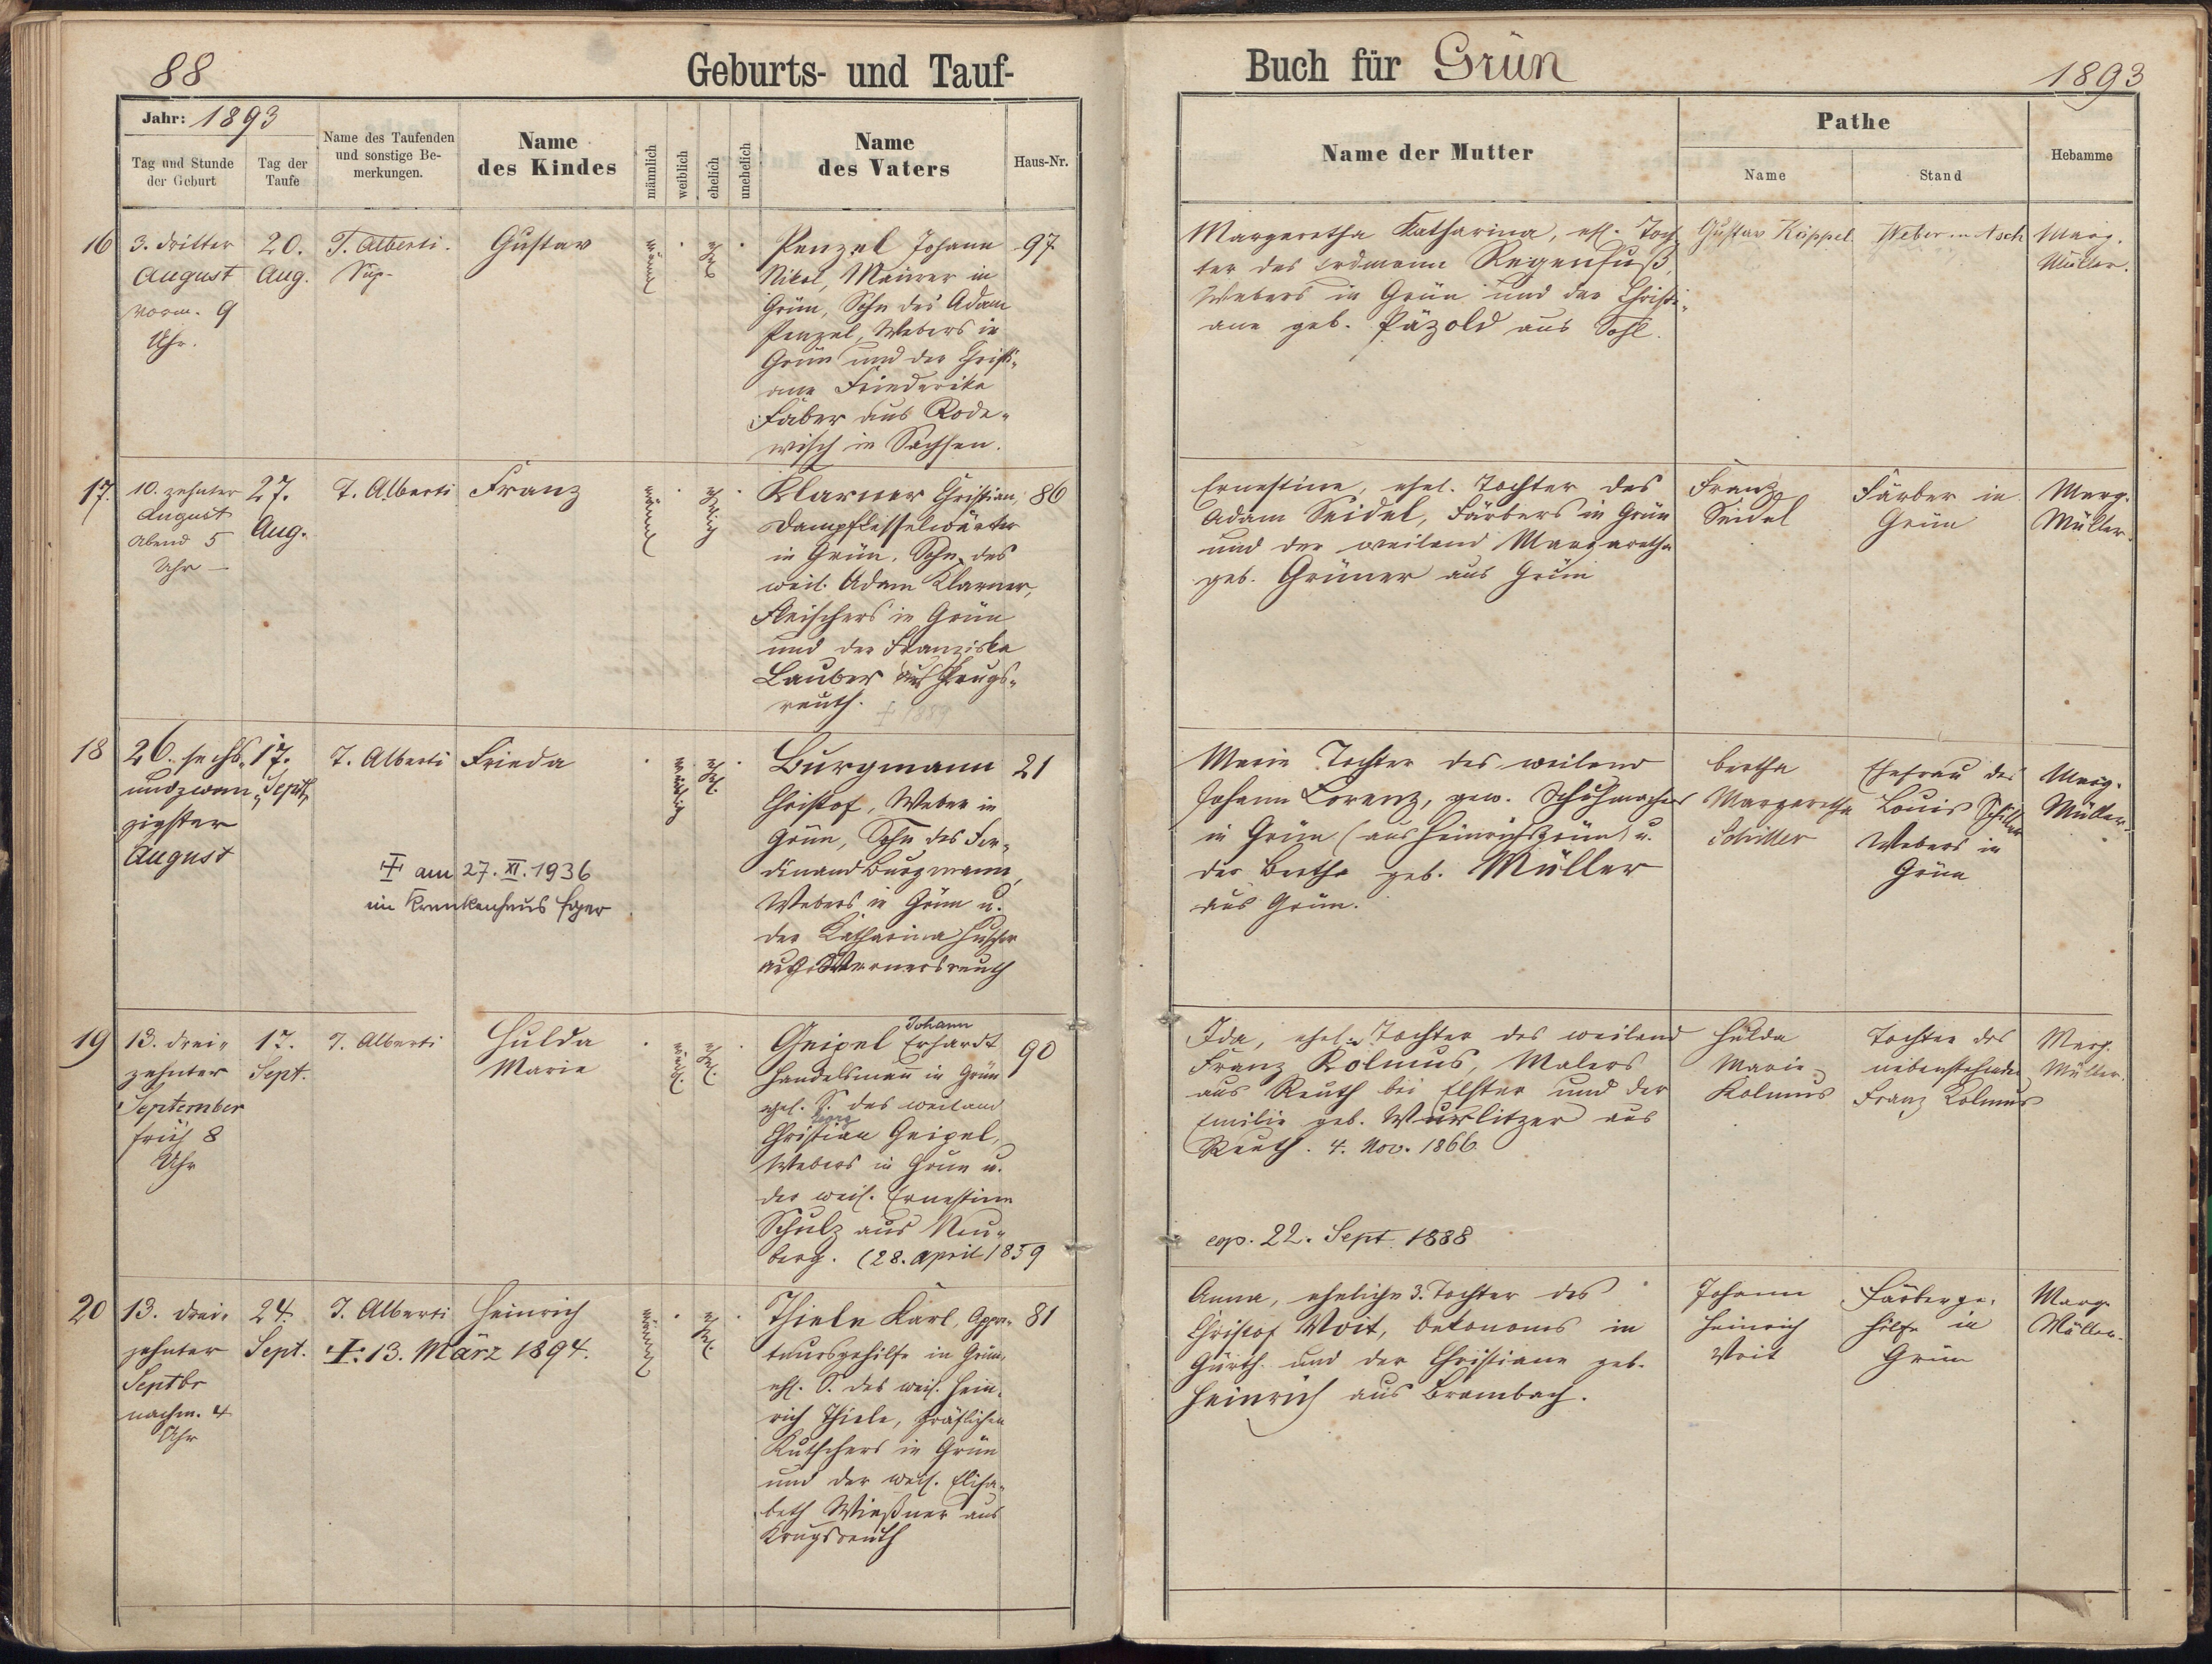 88
Geburts- und Tauf-
Jahr: 1893
Tag und Stunde der Geburt
Tag der Taufe
Name des Taufenden und sonstige Bemerkungen.
Name des Kindes
männlich
weiblich
ehelich
unehelich
Name des Vaters
Haus-Nr.
16
3. dritter
August
Vorm. 9
Uhr.
20.
Aug.
T. Alberti.
Sup.
Gustav
männl
ehel
Penzel Johann
Nikol, Maurer in
Grün, Sohn des Adam
Penzel, Webers in
Grün und der Christi-
ane Friederike
Faber aus Rode-
wisch in Sachsen.
97
17.
10. zehnter
August
Abend 5
Uhr
27.
Aug.
T. Alberti
Franz
männl
ehelig
Klarner Christian,
Dampfkesselwärter
in Grün, Sohn des
weil. Adam Klarner,
Fleischers in Grün
und der Franziska
Lauber aus Krugs-
reuth.
† 1889
86
18
26. sechs-
undzwan-
zigster
August
17.
Sept.
T. Alberti
Frieda
† am 27. XI. 1936
im Krankenhaus Eger
weiblig
ehel.
Burgmann
Christof, Weber in
Grün, Sohn des Fer-
dinand Burgmann,
Webers in Grün u.
der Katharina Huscher
aus Wernersreuth
21
19
13. drei-
zehnter
September
früh 8
Uhr
17.
Sept.
T. Alberti
Hulda
Marie
weibl.
ehel.
Johann
Geipel Erhardt
Handelsmann in Grün
ehel. S. des weiland
Georg
Christian Geipel,
Webers in Grün u.
der weil. Ernestine
Schulz aus Neu-
berg. (28. April 1859
90
20
13. drei-
zehnter
Septbr
nachm. 4
Uhr
24.
Sept.
T. Alberti
Heinrich
†: 13. März 1894.
männl
ehel.
Thiele Karl, Appre-
teursgehilfe in Grün,
ehl. S. des weil. Hein-
rich Thiele, gräflichen
Kutschers in Grün
und der weil. Elisa-
beth Wießner aus
Krugsreuth
81
Buch für Grün
1893
Name der Mutter
Pathe
Name
Stand
Hebamme
Margaretha Katharina, ehl. Toch-
ter des Erdmann Regenfuß,
Webers in Grün und der Christi-
ane geb. Päzold aus Sohl.
Gustav Köppel
Weber in Asch
Marg.
Müller.
Ernestine, ehel. Tochter des
Adam Seidel, Färbers in Grün
und der weiland Margaretha
geb. Grüner aus Grün
Franz
Seidel
Färber in
Grün
Marg.
Müller.
Marie Tochter des weiland
Johann Lorenz, gew. Schuhmachers
in Grün (aus Heinrichsgrün) u.
der Bertha geb. Müller
aus Grün.
Bertha
Margaretha
Schiller
Ehefrau des
Louis Schiller
Webers in
Grün
Marg.
Müller.
Ida, ehel. Tochter des weiland
Franz Kolmus, Malers
aus Reuth bei Elster und der
Emilie geb. Wurlitzer aus
Reuth. 4. Nov. 1866
cop. 22. Sept. 1888
Hulda
Marie
Kolmus
Tochter des
nebenstehenden
Franz Kolmus
Marg.
Müller.
Anna, eheliche 3. Tochter des
Christof Voit, Oekonoms in
Gürth und der Christiane geb.
Heinrich aus Brambach.
Johann
Heinrich
Voit
Färberge-
hilfe in
Grün
Marg.
Müller.